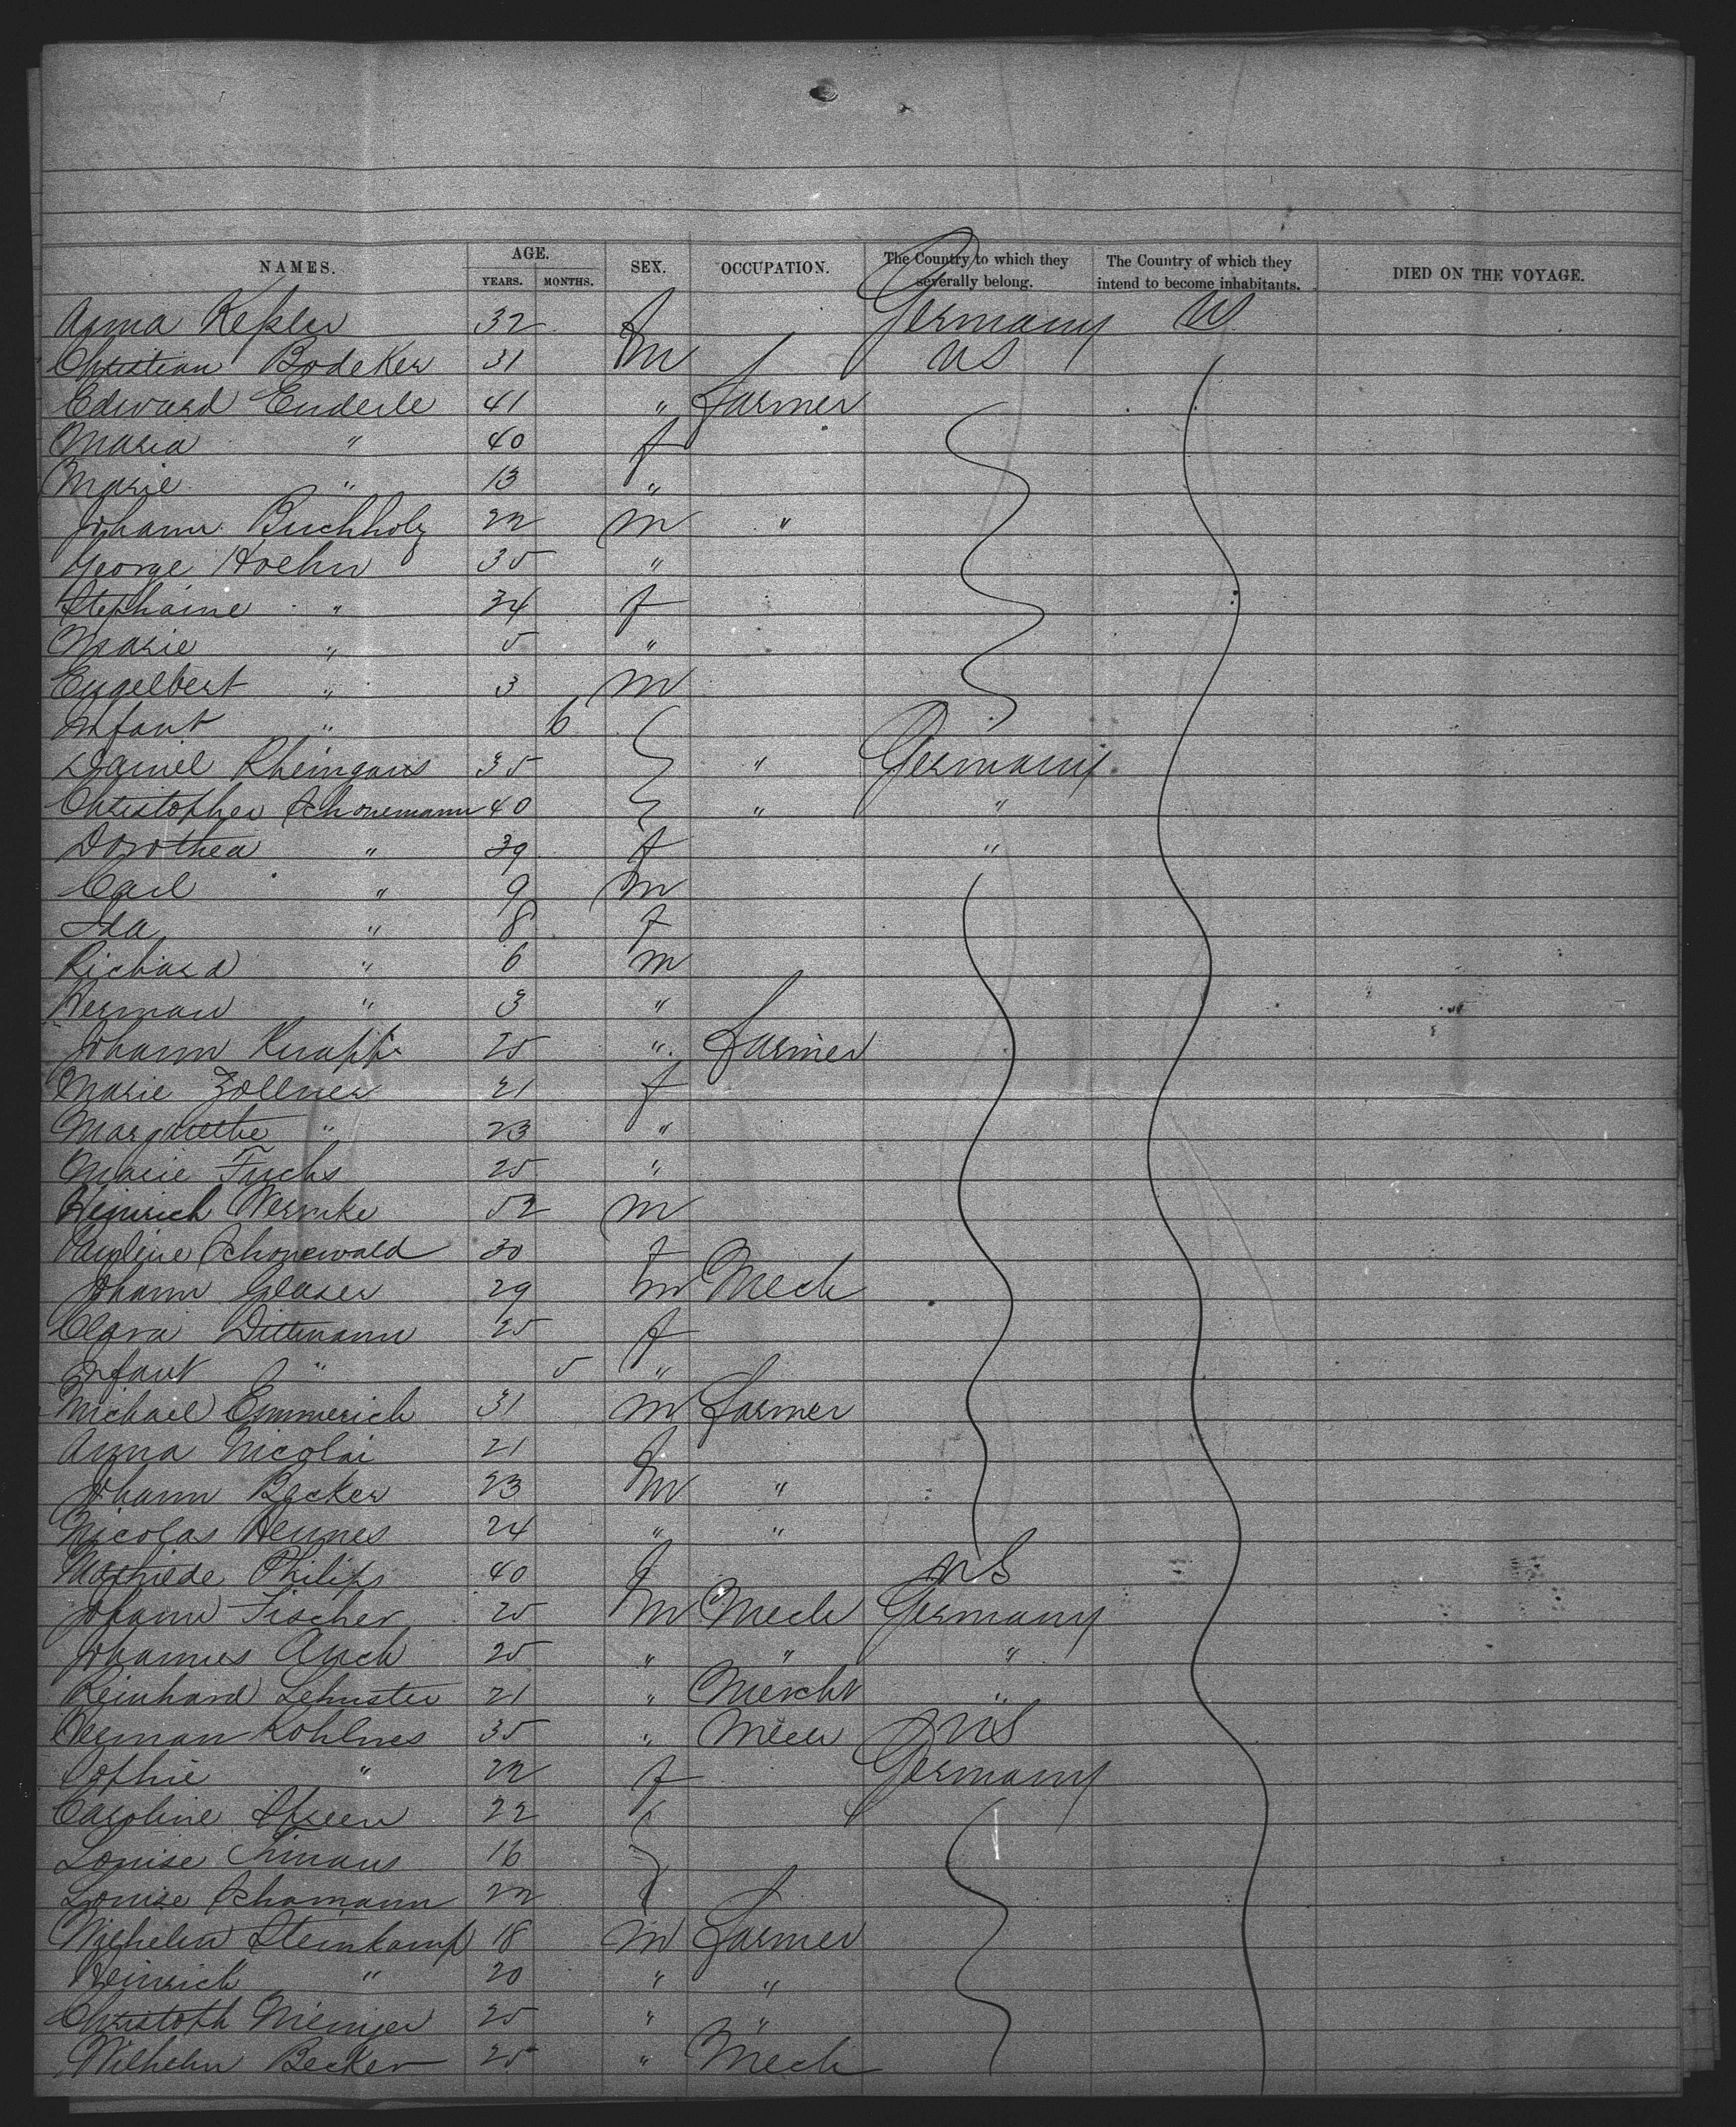 NAMES. AGE. SEX. OCCUPATION. The Country to which they severally belong. The Country of which they intend to become inhabitants. DIED ON THE VOYAGE.
YEARS. MONTHS.
Anna Keßler 32 f Germany US
Christian Bodeker 31 m US
Edward Enderle 41 " farmer
Maria " 40 f
Marie " 13 "
Johann Buchholz 22 m "
George Hoehn 35 "
Stephaine " 34 f
Marie " 5 "
Engelbert " 3 m
Infant " 6
Daniel Rheingans 35 " Germany
Christopher Schonemann 40 " "
Dorothea " 39 f "
Carl " 9 m
Ida " 8 f
Richard " 6 m
Herman " 3 "
Johann Knapp 25 " farmer
Marie Zollner 21 f
Margarethe " 23 "
Marie Fuchs 25 "
Heinrich Wernike 52 m
Pauline Schonewald 30 f
Johann Glaser 29 m Mech
Clara Dittmann 25 f
Infant " 5 "
Michael Emmerich 31 m farmer
Anna Nicolai 21 f
Johann Becker 23 m "
Nicolas Hennes 24 " "
Philips 40 f US
Johann Fischer 25 m Mech Germany
Johannes Auch 25 " " "
Reinhard 21 " Mercht "
Herman Kohlmes 35 " Mech US
Sophie " 22 f Germany
Caroline 22
Louise 16
Louise Schamann 22
Wilhelm Steinkamp 18 m farmer
Heinrich " 20 " "
Christoph 25 " "
Wilhelm Becker 25 " Mech